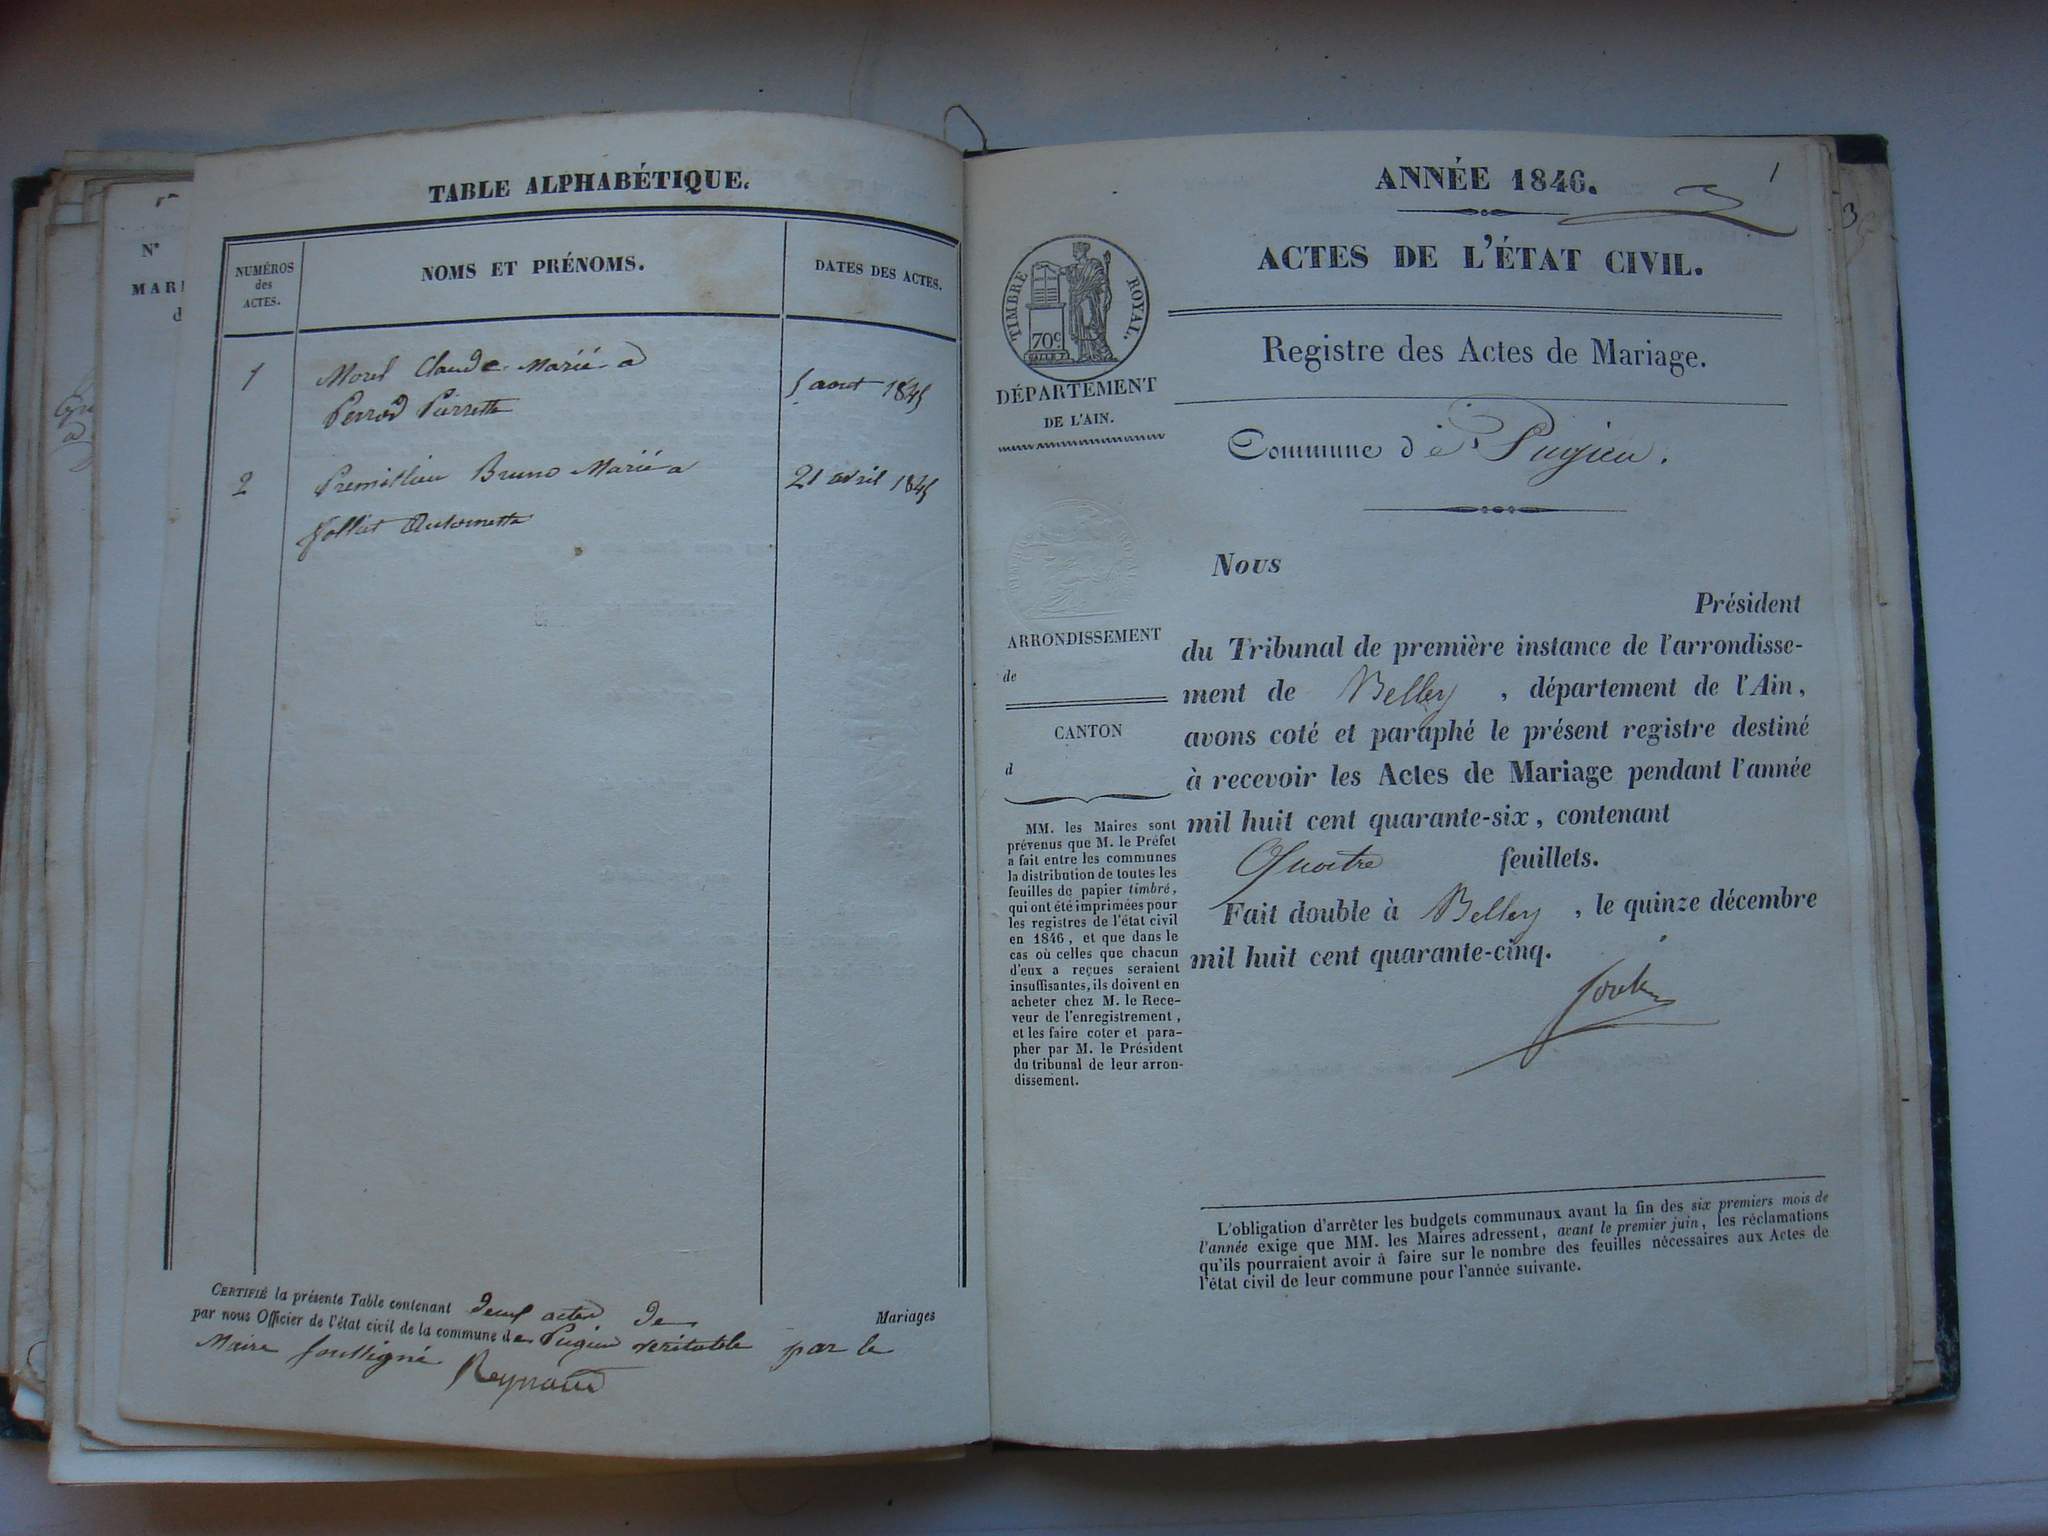 TABLE ALPHABÉTIQUE.
NUMÉROS
des
ACTES.
NOMS ET PRÉNOMS.
DATES DES ACTES.
1
Morel Claude Marié a
5 aout 1845
Perrod Pierrette
2
Premillieu Bruno Marié a
21 avril 1845
Jolliet Antoinette
CERTIFIÉ la présente Table contenant deux actes de Mariages
par nous Officier de l'état civil de la commune de Pugieu veritable par le
Maire soussigné Reynaud
N°
MARI
d
ANNÉE 1846.
1
3
ACTES DE L'ÉTAT CIVIL.
TIMBRE ROYAL.
70c
DÉPARTEMENT
DE L'AIN.
Registre des Actes de Mariage.
Commune de Pugieu.
ARRONDISSEMENT
de
CANTON
d
MM. les Maires sont
prévenus que M. le Préfet
a fait entre les communes
la distribution de toutes les
feuilles de papier timbré,
qui ont été imprimées pour
les registres de l'état civil
en 1846, et que dans le
cas où celles que chacun
d'eux a reçues seraient
insuffisantes, ils doivent en
acheter chez M. le Rece-
veur de l'enregistrement,
et les faire coter et para-
pher par M. le Président
du tribunal de leur arron-
dissement.
Nous
Président
du Tribunal de première instance de l'arrondisse-
ment de Belley, département de l'Ain,
avons coté et paraphé le présent registre destiné
à recevoir les Actes de Mariage pendant l'année
mil huit cent quarante-six, contenant
Quatre feuillets.
Fait double à Belley, le quinze décembre
mil huit cent quarante-cinq.
L'obligation d'arrêter les budgets communaux avant la fin des six premiers mois de
l'année exige que MM. les Maires adressent, avant le premier juin, les réclamations
qu'ils pourraient avoir à faire sur le nombre des feuilles nécessaires aux Actes de
l'état civil de leur commune pour l'année suivante.